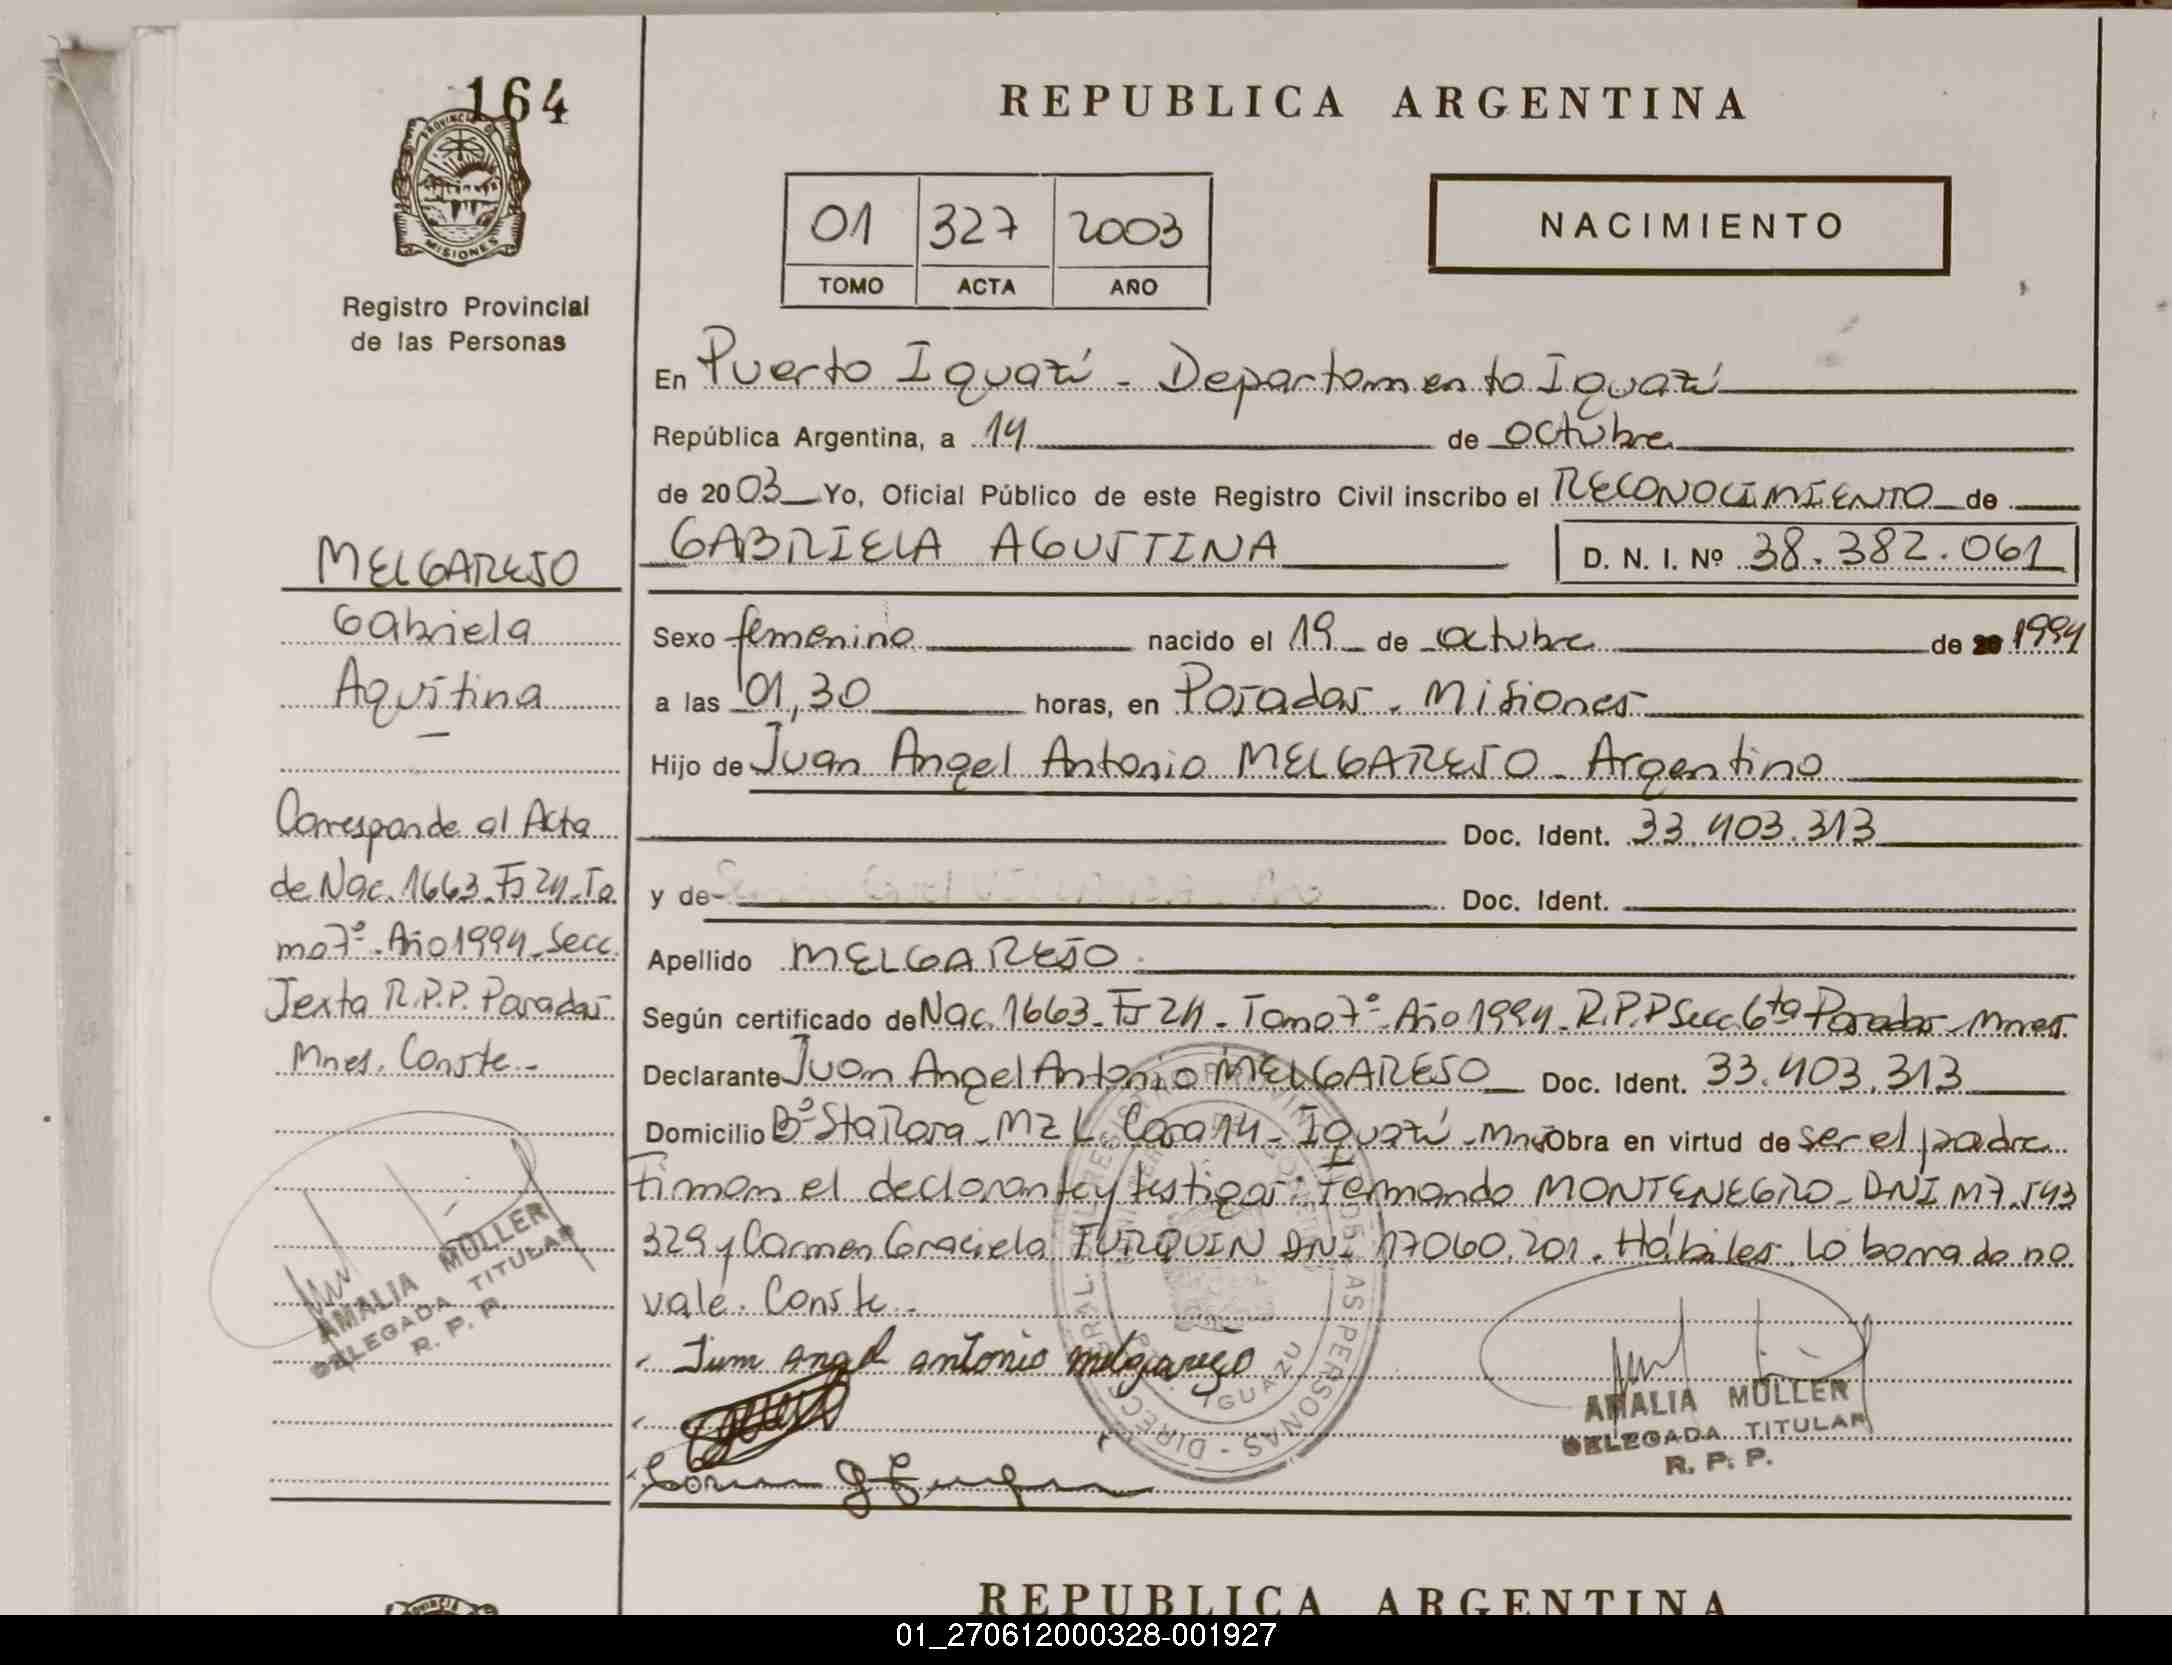 164
PROVINCIA DE
MISIONES
Registro Provincial
de las Personas
MELGAREJO
Gabriela
Agustina
Corresponde al Acta
de Nac. 1663-Fº 24-To
mo 7º-Año 1994-Secc.
Sexta R.P.P. Posadas
Mnes. Conste.-
AMALIA MULLER
DELEGADA TITULAR
R. P. P.
REPUBLICA ARGENTINA
01 327 2003
TOMO ACTA AÑO
NACIMIENTO
En Puerto Iguazú - Departamento Iguazú
República Argentina, a 14 de octubre
de 2003 Yo, Oficial Público de este Registro Civil inscribo el RECONOCIMIENTO de
GABRIELA AGUSTINA D. N. I. Nº 38.382.061
Sexo femenino nacido el 19 de octubre de 1994
a las 01,30 horas, en Posadas - Misiones
Hijo de Juan Angel Antonio MELGAREJO - Argentino
Doc. Ident. 33.403.313
y de Doc. Ident.
Apellido MELGAREJO.
Según certificado de Nac. 1663-Fº 24-Tomo 7º-Año 1994-R.P.P Secc. 6ta Posadas-Mnes.
Declarante Juan Angel Antonio MELGAREJO Doc. Ident. 33.403.313
Domicilio Bº Sta Rosa - Mz L Casa 14 - Iguazú - Mnes Obra en virtud de ser el padre
Firman el declarante y testigos: Fernando MONTENEGRO - DNI M7.543
329 y Carmen Graciela TURQUIN DNI 17060.201. Hábiles. Lo borrado no
vale. Conste.-
Juan angel antonio melgarejo
AMALIA MULLER
DELEGADA TITULAR
R. P. P.
IGUAZU
REPUBLICA ARGENTINA
01_270612000328-001927